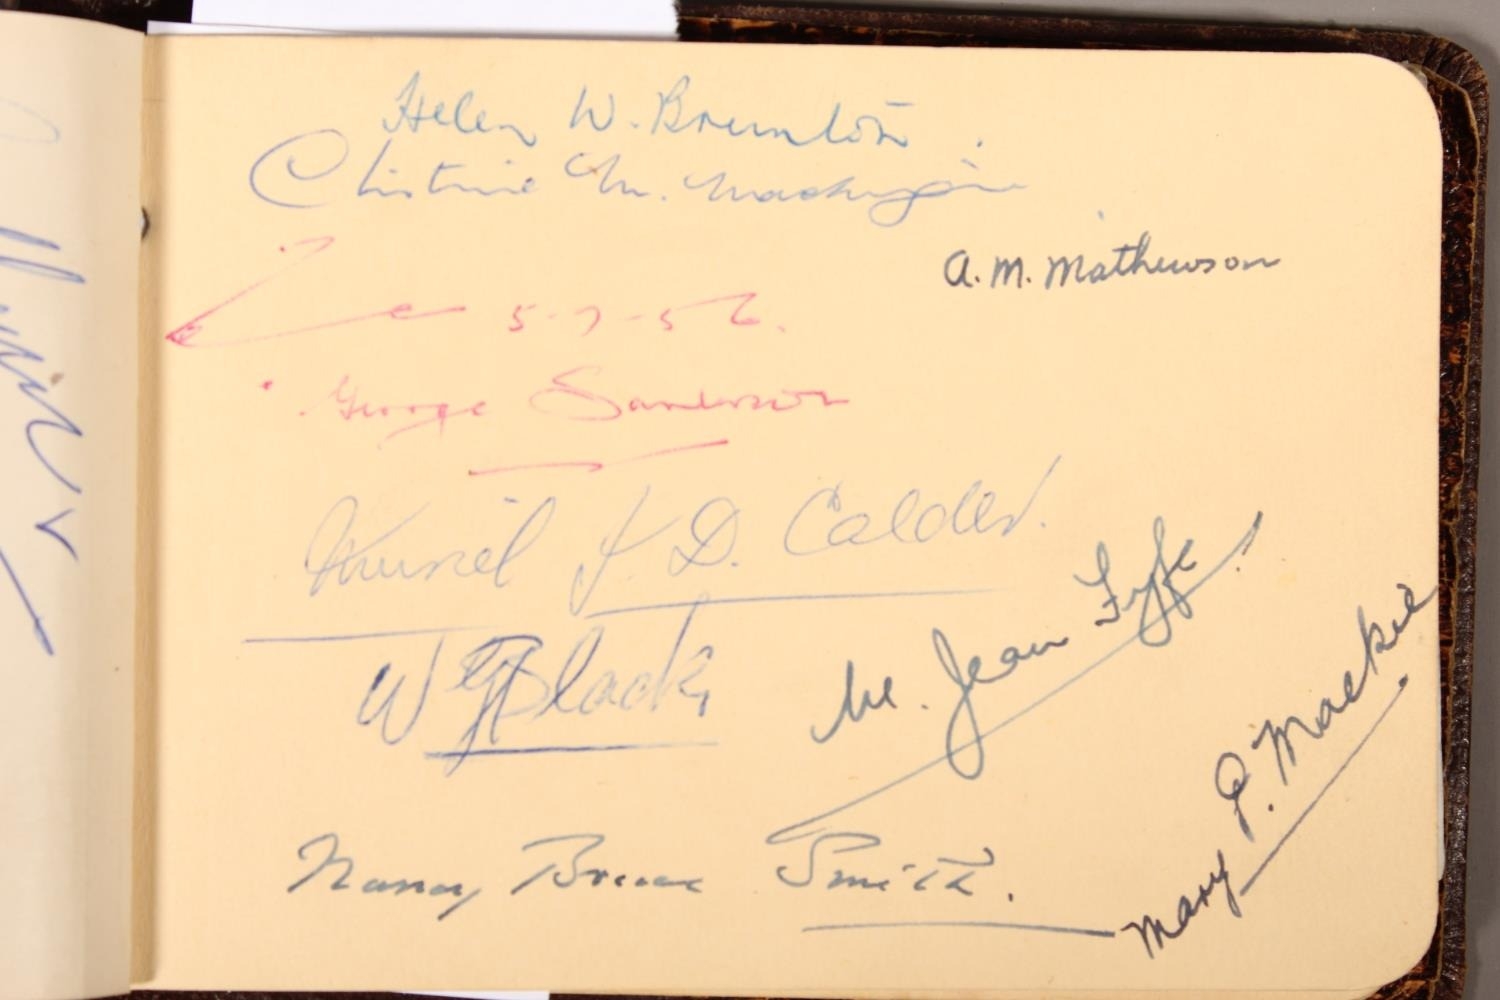 Helen W. Brunton.
Christine M.
A. M. Mathewson
5-7-56.
George Sanderson
Muriel J. D. Calder.
W Black
M. Jean Fyfe.
Mary P. Mackie.
Nancy Bruce Smith.